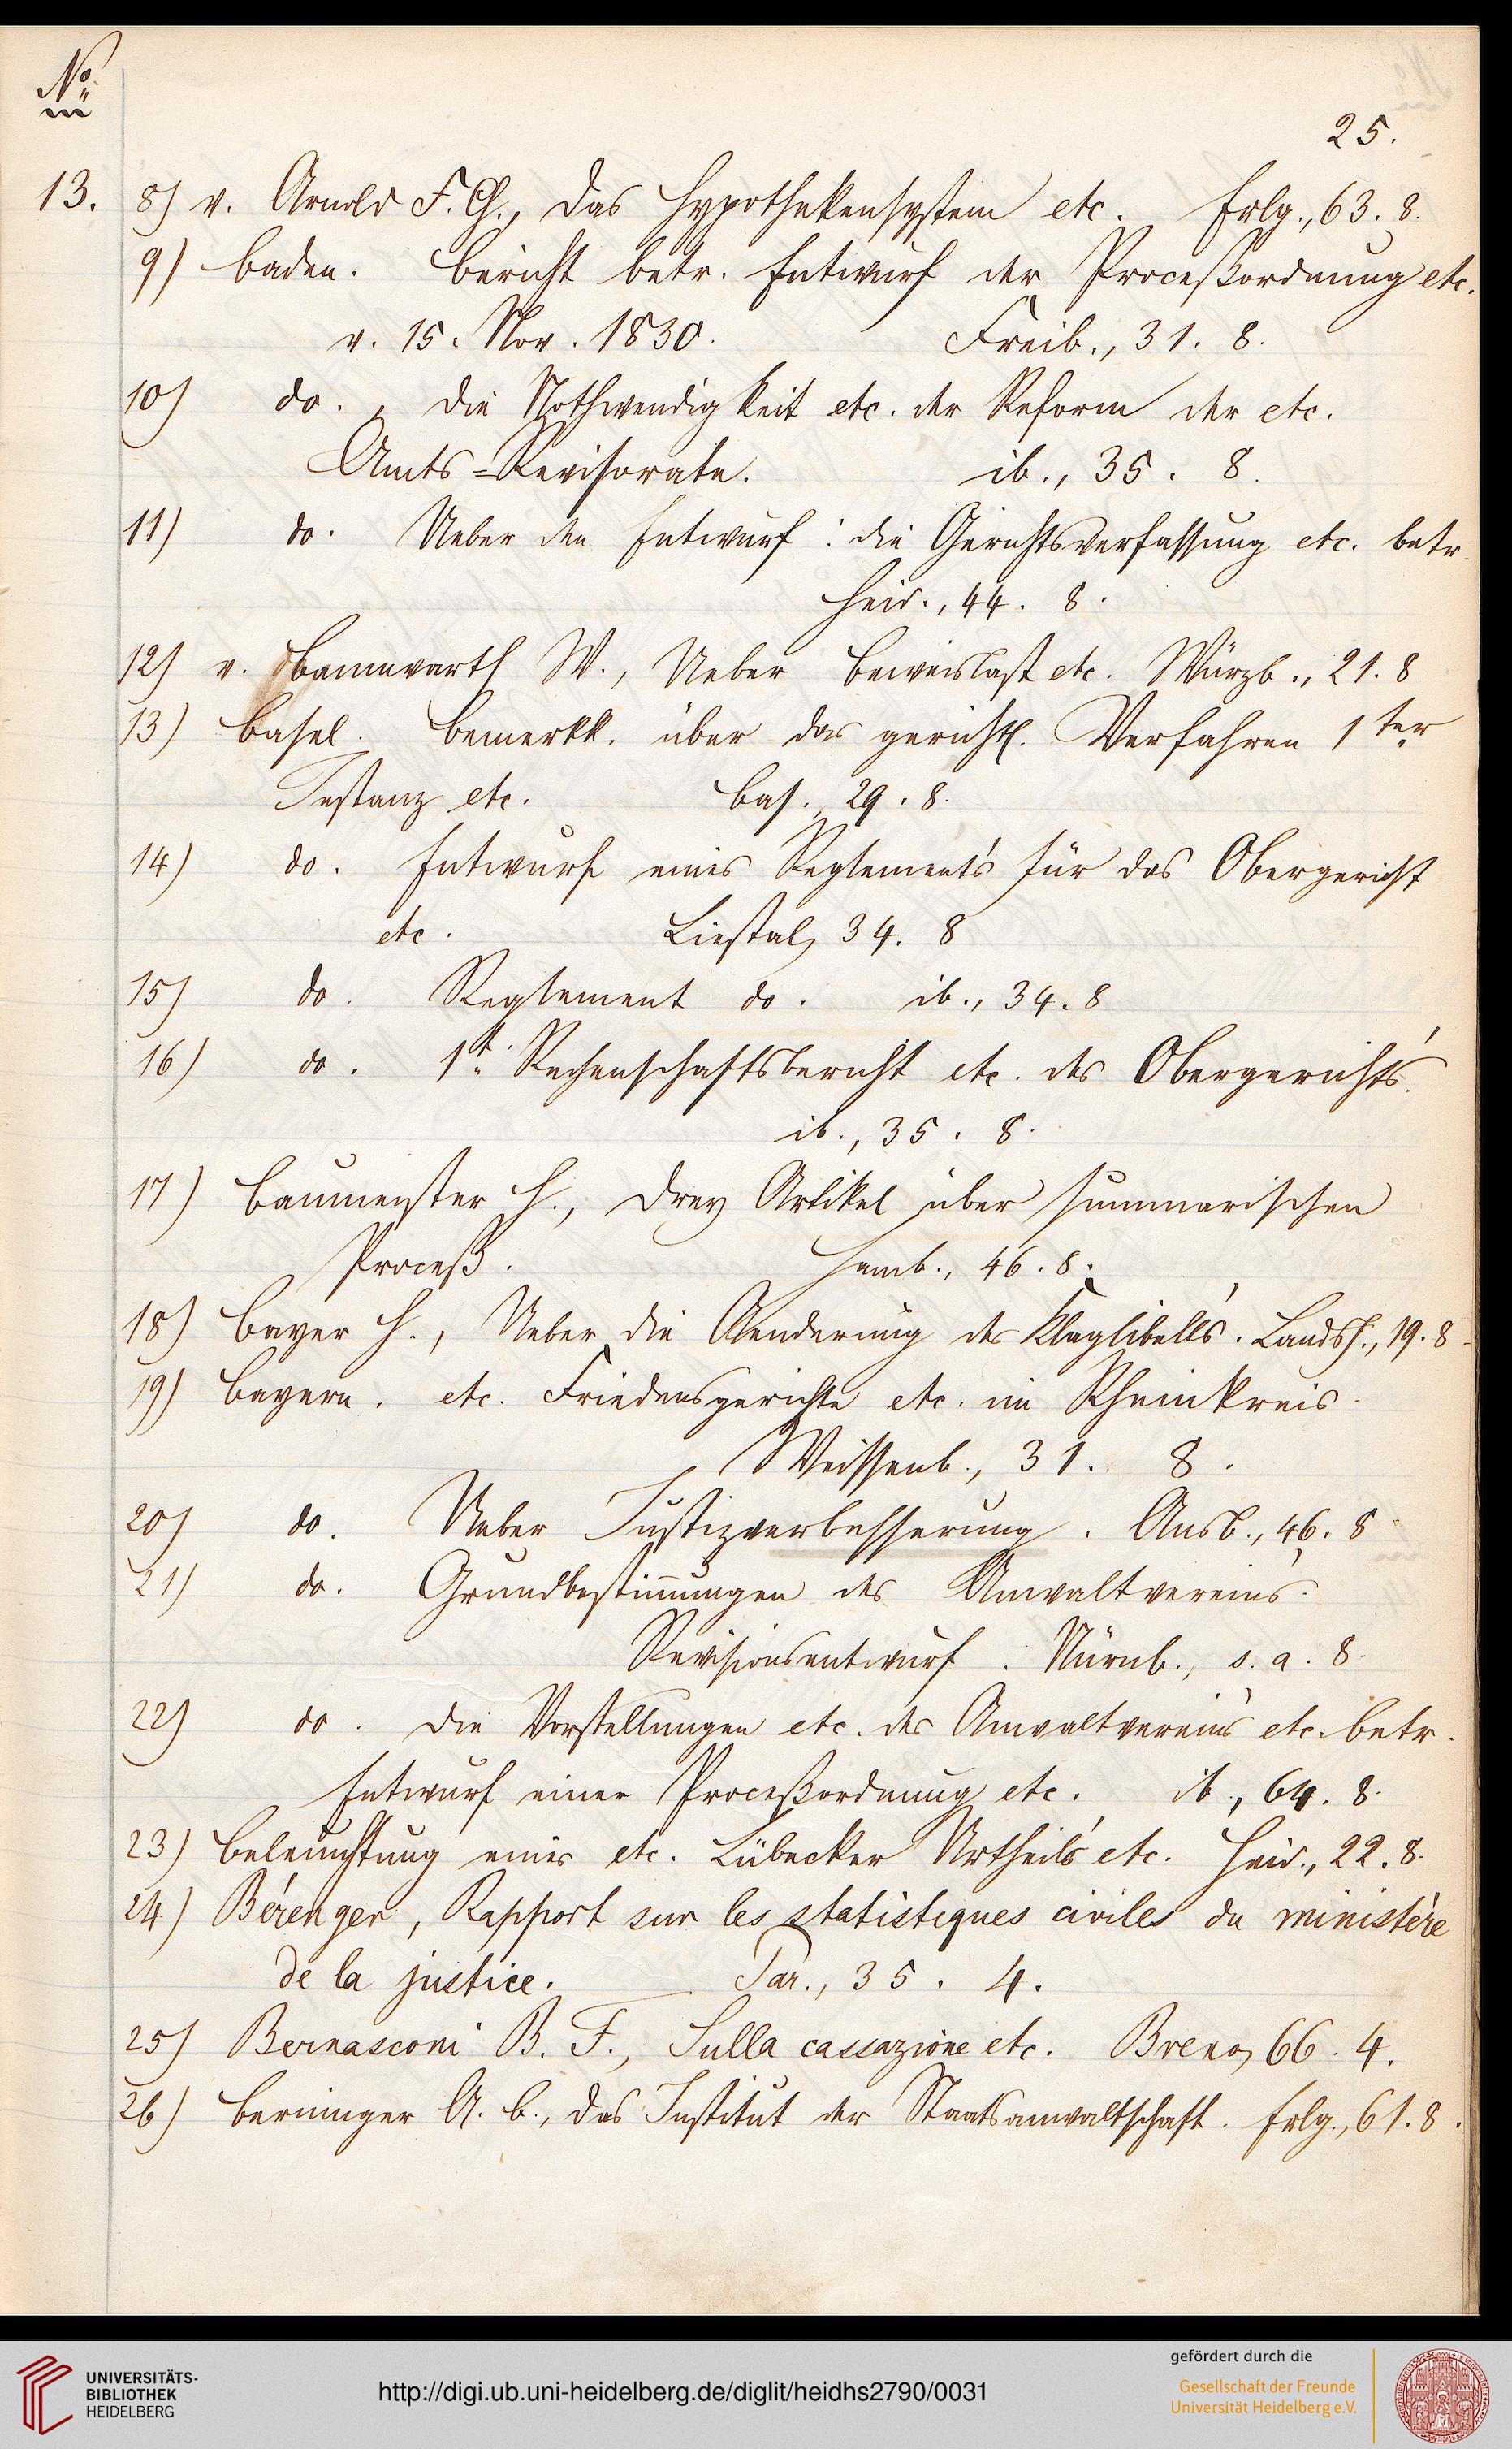 No.
25.
13. 8) v. Arnold F. Ch., Das Hypothekensystem etc. Erlg., 63. 8.
9) Baden. Bericht betr. Entwurf der Proceßordnung etc.
v. 15. Nov. 1830. Freib., 31. 8.
10) do. Die Nothwendigkeit etc. der Reform der etc.
Amts=Revisorate. ib., 35. 8.
11) do. Ueber den Entwurf: die Gerichtsverfassung etc. betr.
Heid., 44. 8.
12) v. Bannwarth W., Ueber Beweislast etc. Würzb., 21. 8
13) Basel. Bemerkk. über das gerichtl. Verfahren 1ter
Instanz etc. Bas., 29. 8.
14) do. Entwurf eines Reglement's für das Obergericht
etc. Liestal, 34. 8
15) do. Reglement do. ib., 34. 8
16) do. 1st. Rechenschaftsbericht etc. des Obergericht's.
ib., 35. 8.
17) Baumeister H., Drey Artikel über summarischen
Proceß. Hamb., 46. 8.
18) Bayer H., Ueber die Aenderung des Klaglibell's. Landsh., 19. 8.
19) Bayern. etc. Friedensgerichte etc. im Rheinkreis.
Weissenb., 31. 8.
20) do. Ueber Justizverbesserung. Ansb., 46. 8.
21) do. Grundbestim̅ungen des Anwaltvereins.
Revisionsentwurf. Nürnb., s. a. 8.
22) do. Die Vorstellungen etc. des Anwaltverein's etc. betr.
Entwurf einer Proceßordnung etc. ib., 64. 8.
23) Beleuchtung eines etc. Lübecker Urtheil's etc. Heid., 22. 8.
24) Bérenger, Rapport sur les statistiques civiles du ministère
de la justice. Par., 35. 4.
25) Bernasconi B. F., Sulla cassazione etc. Breno, 66. 4.
26) Berninger A. B., Das Institut der Staatsanwaltschaft. Erlg., 61. 8.
UNIVERSITÄTS-
BIBLIOTHEK
HEIDELBERG
http://digi.ub.uni-heidelberg.de/diglit/heidhs2790/0031
gefördert durch die
Gesellschaft der Freunde
Universität Heidelberg e.V.